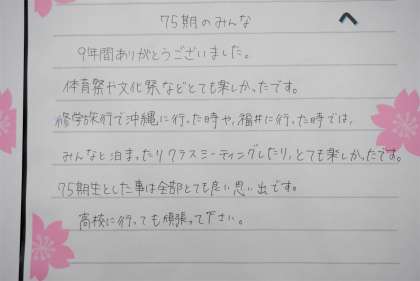 75期のみんなへ
9年間ありがとうございました。
体育祭や文化祭などとても楽しかったです。
修学旅行で沖縄に行った時や,福井に行った時では,
みんなと泊まったりクラスミーティングしたり,とても楽しかったです。
75期生とした事は全部とても良い思い出です。
高校に行っても頑張って下さい。